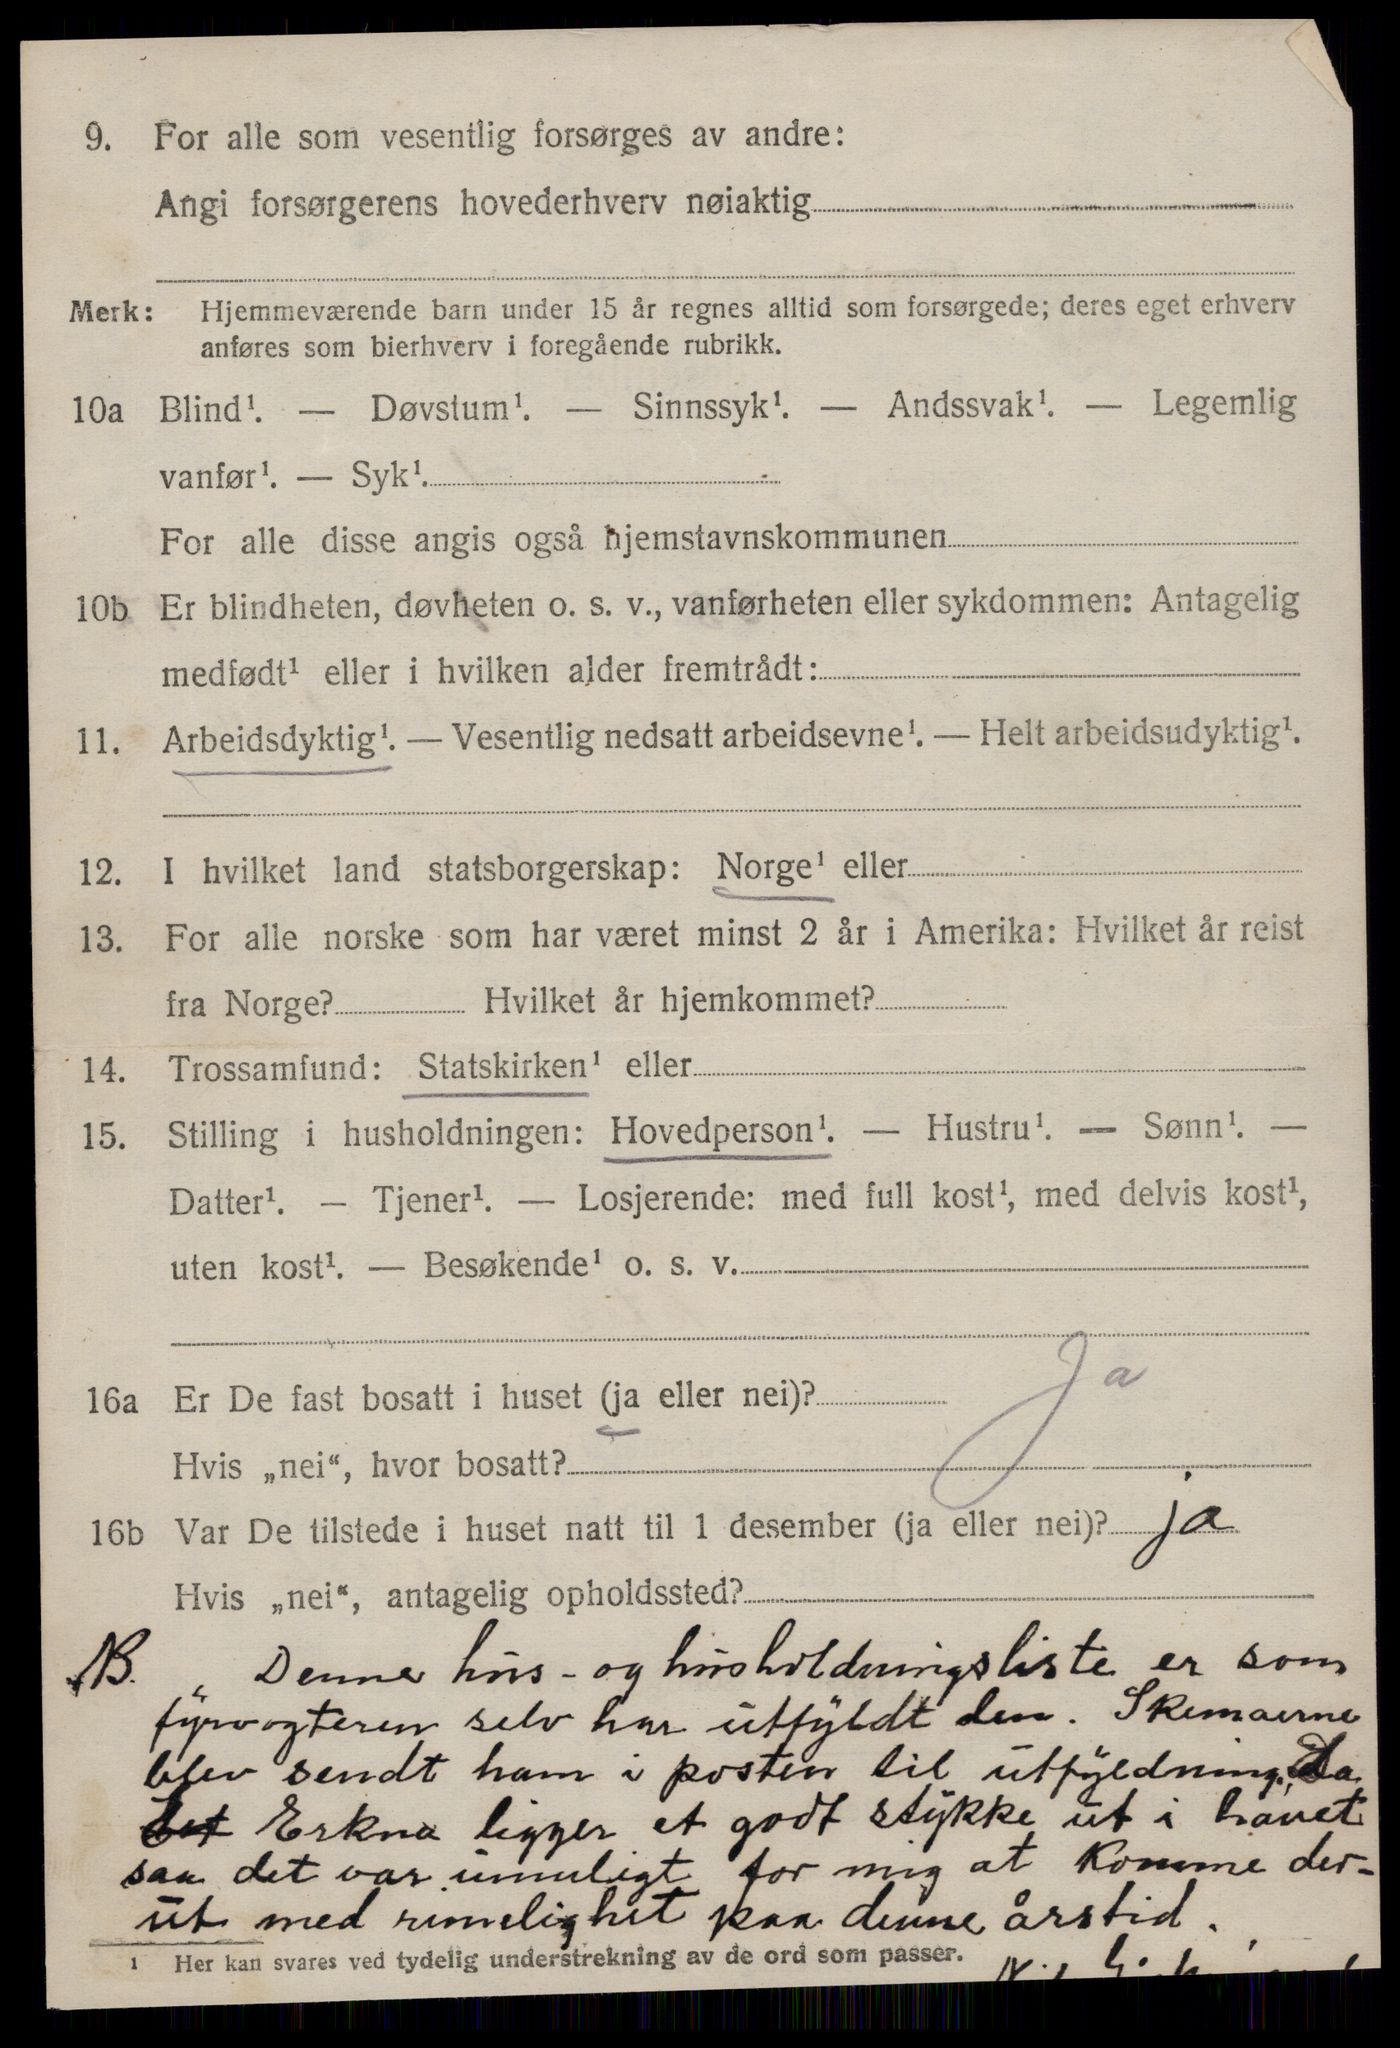 9. For alle som vesentlig forsørges av andre:
Angi forsørgerens hovederhverv nøiaktig
Merk: Hjemmeværende barn under 15 år regnes alltid som forsørgede; deres eget erhverv
anføres som bierhverv i foregående rubrikk.
10a Blind¹. — Døvstum¹. — Sinnssyk¹. — Andssvak¹. — Legemlig
vanfør¹. — Syk¹.
For alle disse angis også hjemstavnskommunen
10b Er blindheten, døvheten o. s. v., vanførheten eller sykdommen: Antagelig
medfødt¹ eller i hvilken alder fremtrådt:
11. Arbeidsdyktig¹. — Vesentlig nedsatt arbeidsevne¹. — Helt arbeidsudyktig¹.
12. I hvilket land statsborgerskap: Norge¹ eller
13. For alle norske som har været minst 2 år i Amerika: Hvilket år reist
fra Norge? Hvilket år hjemkommet?
14. Trossamfund: Statskirken¹ eller
15. Stilling i husholdningen: Hovedperson¹. — Hustru¹. — Sønn¹. —
Datter¹. — Tjener¹. — Losjerende: med full kost¹, med delvis kost¹,
uten kost¹. — Besøkende¹ o. s. v.
16a Er De fast bosatt i huset (ja eller nei)? Ja
Hvis „nei“, hvor bosatt?
16b Var De tilstede i huset natt til 1 desember (ja eller nei)? ja
Hvis „nei“, antagelig opholdssted?
NB. Denne hus- og husholdningsliste er som
fyrvogteren selv har utfyldt den. Skemaerne
blev sendt ham i posten til utfyldning. Da
det Erkna ligger et godt stykke ut i havet
saa det var umuligt for mig at komme der-
ut med rimelighet paa denne årstid.
1 Her kan svares ved tydelig understrekning av de ord som passer.